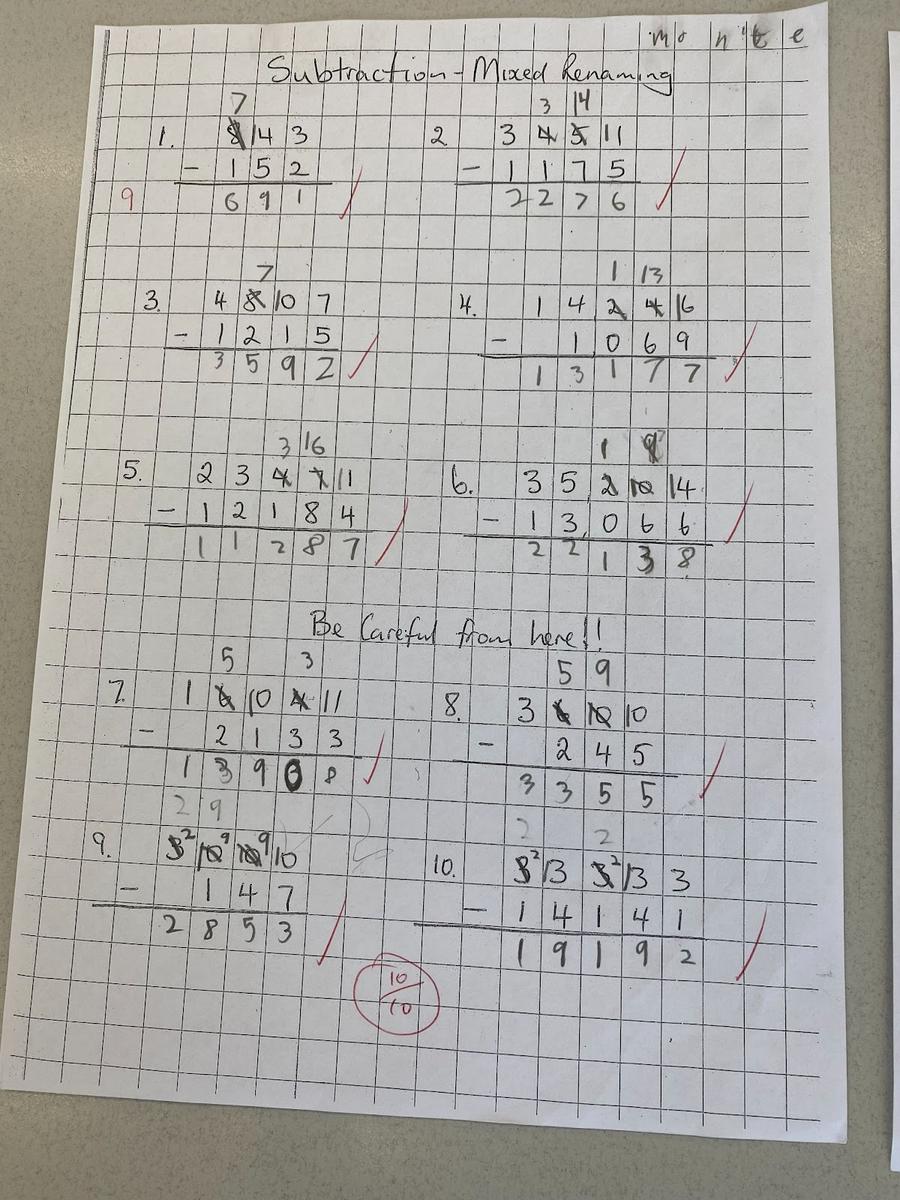 mo nite
Subtraction - Mixed Renaming
7 3 14
1. 8 14 3 2 3 4 5 11
- 1 5 2 - 1 1 7 5
9 6 9 1 2 2 7 6
7 1 13
3. 4 8 10 7 4. 1 4 2 4 16
- 1 2 1 5 - 1 0 6 9
3 5 9 2 1 3 1 7 7
3 16 1 9
5. 2 3 4 7 11 6. 3 5 2 10 14
- 1 2 1 8 4 - 1 3 0 6 6
1 1 2 8 7 2 2 1 3 8
Be Careful from here!!
5 3 5 9
7. 1 6 10 4 11 8. 3 6 10 10
- 2 1 3 3 - 2 4 5
1 3 9 0 8 3 3 5 5
2 9 2 2
9. 3 2 10 9 10 9 10 10. 3 2 13 3 2 13 3
- 1 4 7 - 1 4 1 4 1
2 8 5 3 1 9 1 9 2
10/10